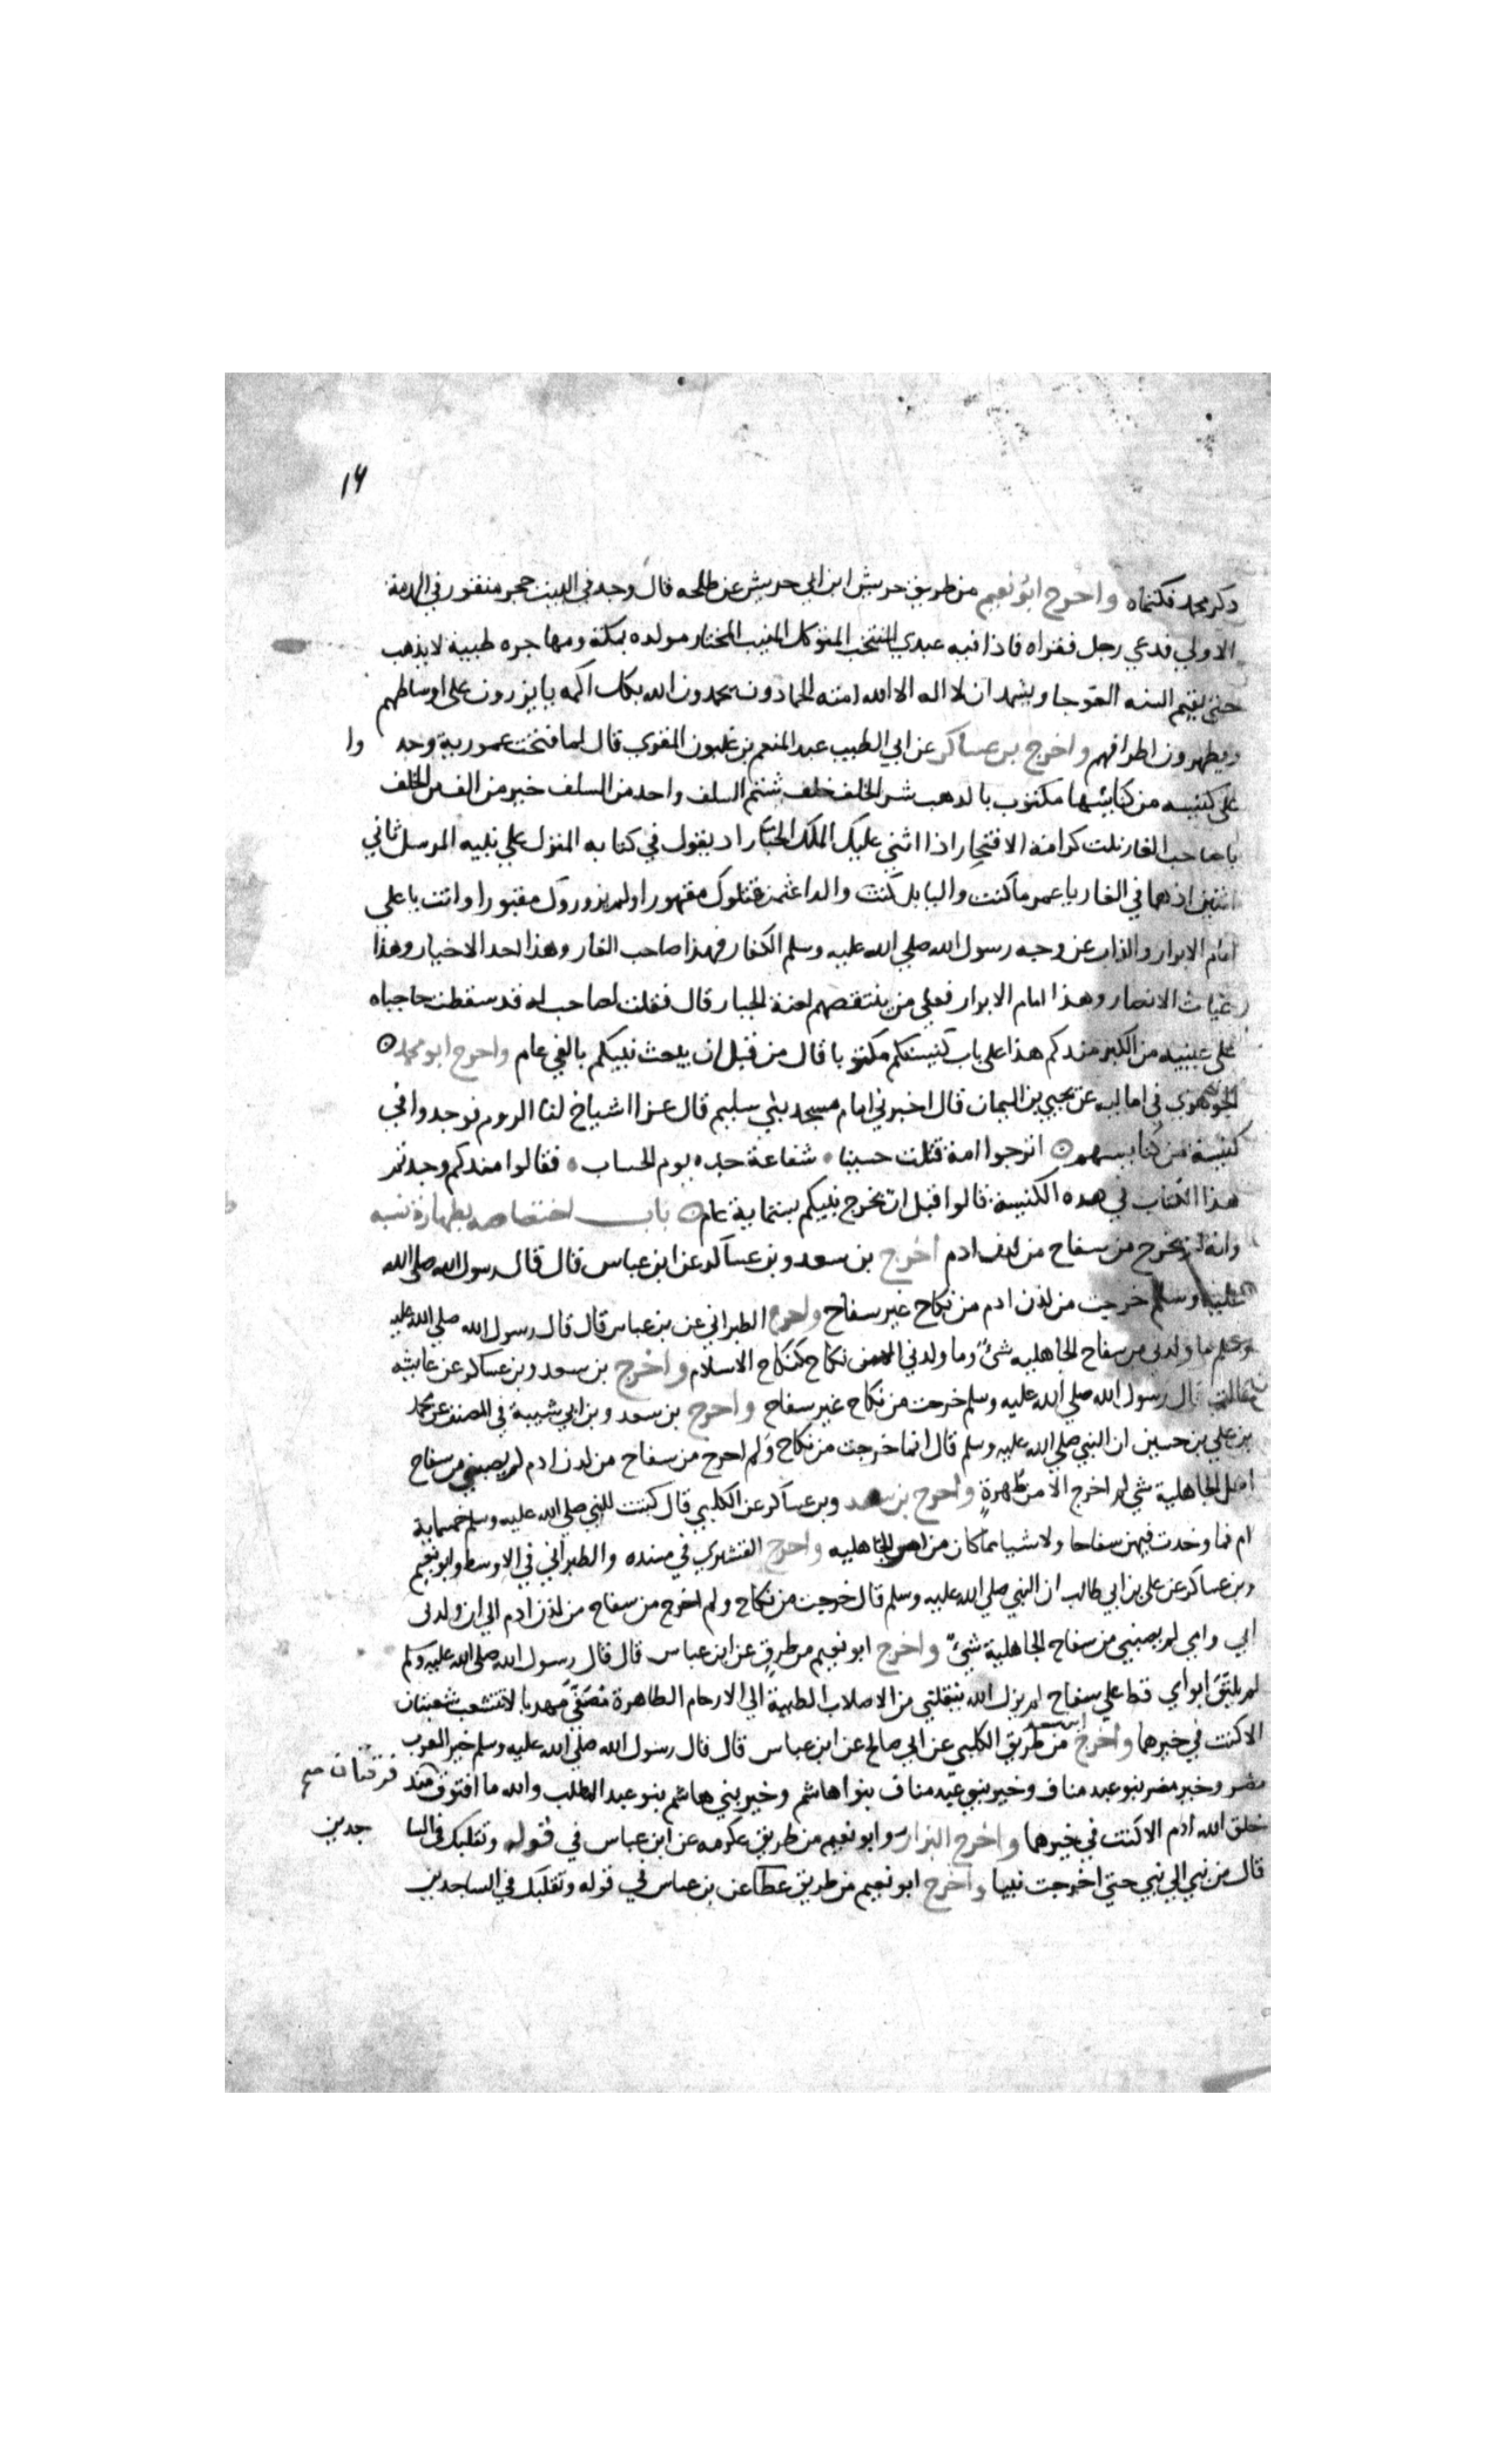 ١٤
ذكر محمد فكتماه واخرج ابو نعيم من طريق حريش ابن ابي حريش عن طلحه قال وجد في البيت حجر منقور في الهدمة
الاولي فدعي رجل فقراه فاذا فيه عبدي المنتخب المتوكل المنيب المختار مولده بمكة ومهاجره طيبة لا يذهب
حتي يقيم السنه العوجا ويشهد ان لا اله الا الله امته الحمادون يحمدون الله بكل اكمه يايتزرون على اوساطهم
ويطهرون اطرافهم واخرج بن عساكر عن ابي الطيب عبد المنعم بن غلبون المقري قال لما فتحت عمورية وجد وا
على كنيسه من كنايسها مكتوب بالدهب شر الخلف خلف شتم السلف واحد من السلف خير من الف من الخلف
يا صاحب الغار نلت كرامة الافتخار اذا اثني عليك الملك الجبار اد يقول في كتابه المنزل علي نبيه المرسل ثاني
اثنين اذ هما في الغار يا عمر ما كنت واليا بل كنت والدا عثمن قتلوك مقهورا ولم يزوروك مقبورا وانت يا علي
امام الابرار والذاب عن وجه رسول الله صلي الله عليه وسلم الكفار فهذا صاحب الغار وهذا احد الاخيار وهذا
غياث الانصار وهذا امام الابرار فعلي من ينتقصهم لعنة الجبار قال فقلت لصاحب له قد سقطت حاجباه
على عينيه من الكبر منذ كم هذا على باب كنيستكم مكتوبا قال من قبل ان يبعث نبيكم بالفي عام واخرج ابو محمد
الجوهري في اماليه عن يحيي بن اليمان قال اخبرني امام مسجد بني سليم قال غزا اشياخ لنا الروم فوجدوا في
كنيسة من كنايسهم اترجوا امة قتلت حسينا شفاعة جده يوم الحساب فقالوا منذ كم وجدتم
هذا الكتاب في هده الكنيسة قالوا قبل ان يخرج نبيكم بستماية عام باب اختصاصه بطهارة نسبه
وانه لم يخرج من سفاح من لدن ادم اخرج بن سعد وبن عساكر عن ابن عباس قال قال رسول الله صلى الله
عليه وسلم خرجت من لدن ادم من نكاح غير سفاح واخرج الطبراني عن بن عباس قال قال رسول الله صلي الله عليه
وسلم ما ولدني من سفاح الجاهليه شئ وما ولدني الا من نكاح كنكاح الاسلام واخرج بن سعد وبن عساكر عن عايشه
قالت قال رسول الله صلي الله عليه وسلم خرجت من نكاح غير سفاح واخرج بن سعد وبن ابي شيبة في المصنف عن محمد
بن علي بن حسين ان النبي صلي الله عليه وسلم قال انما خرجت من نكاح ولم اخرج من سفاح من لدن ادم لم يصبني من سفاح
اهل الجاهلية شي لم اخرج الا من طهرة واخرج بن سعد وبن عساكر عن الكلبي قال كتبت للنبي صلي الله عليه وسلم خمسماية
ام فما وجدت فيهن سفاحا ولا شيا مما كان من امر الجاهليه واخرج العدني في مسنده والطبراني في الاوسط وابو نعيم
وبن عساكر عن علي بن ابي طالب ان النبي صلي الله عليه وسلم قال خرجت من نكاح ولم اخرج من سفاح من لدن ادم الي ان ولدني
ابي وامي لم يصبني من سفاح الجاهلية شئ واخرج ابو نعيم من طرق عن ابن عباس قال قال رسول الله صلى الله عليه وسلم
لم يلتق ابواي قط علي سفاح لم يزل الله ينقلني من الاصلاب الطيبة الي الارحام الطاهرة مصفي مهدبا لا تتشعب شعبتان
الا كنت في خيرهما واخرج ابن سعد من طريق الكلبي عن ابي صالح عن ابن عباس قال قال رسول الله صلي الله عليه وسلم خير العرب
مضر وخير مضر بنو عبد مناف وخير بني عبد مناف بنوا هاشم وخير بني هاشم بنو عبد المطلب والله ما افترق منذ فرقتان صح
خلق الله ادم الا كنت في خيرهما واخرج البزار وابو نعيم من طريق عكرمه عن ابن عباس في قوله وتقلبك في السا جدين
قال من نبي الي نبي حتي اخرجت نبيا واخرج ابو نعيم من طريق عطا عن بن عباس في قوله وتقلبك في الساجدين